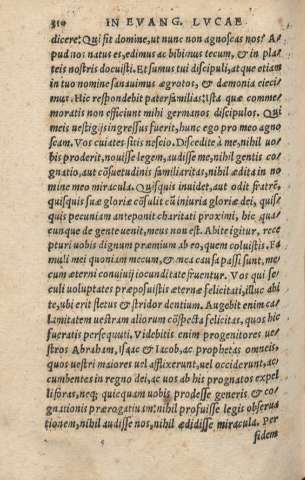 310 IN EVANG. LVCAE
dicere: Qui fit domine, ut nunc non agnoscas nos? A=
pud nos natus es, edimus ac bibimus tecum, & in pla=
teis nostris docuisti. Et sumus tui discipuli, at que etiam
in tuo nomine sanauimus ægrotos, & dæmonia eieci
mus. Hic respondebit paterfamilias: Ista quæ comme=
moratis non efficiunt mihi germanos discipulos. Qui
meis uestigijs ingressus fuerit, hunc ego pro meo agno
scam. Vos cuiates sitis nescio. Discedite à me, nihil uo=
bis proderit, nouisse legem, audisse me, nihil gentis co=
gnatio, aut cōsuetudinis familiaritas, nihil ædita in no
mine meo miracula. Quisquis inuidet, aut odit fratrē,
quisquis suæ gloriæ cōsulit cū iniuria gloriæ dei, quis=
quis pecuniam anteponit charitati proximi, hic quá=
cunque de gente uenit, meus non est. Abite igitur, rece
pturi uobis dignum præmium ab eo, quem coluistis. Ęs
muli mei quoniam mecum, & mea causa passi sunt, me=
cum æterni conuiuij iocunditate fruentur. Vos qui se=
culi uoluptates præposuistis æternæ felicitati, illuc abi
te, ubi erit fletus & stridor dentium. Augebit enim ca=
lamitatem uestram aliorum cōspecta felicitas, quos hic
fueratis persequuti. Videbitis enim progenitores ue=
stros Abraham, Isaac & Iacob, ac prophetas omneis,
quos uestri maiores uel afflixerunt, uel occiderunt, ac=
cumbentes in regno dei, ac uos ab his prognatos expel
li foras, neq; quicquam uobis prodesse generis & co=
gnationis prærogatiuam: nihil profuisse legis obserua
tionem, nihil audisse nos, nihil ædidisse miracula. Per
fidem